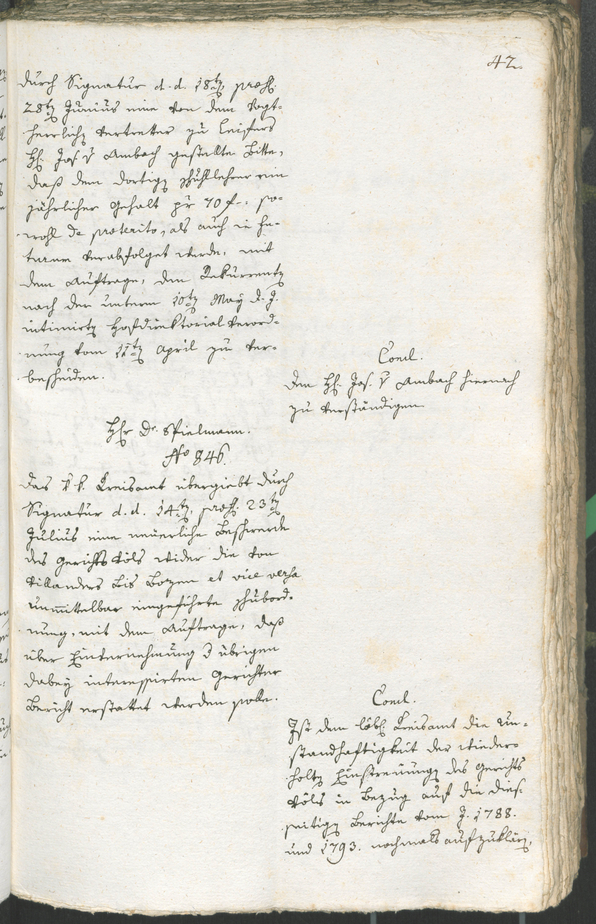 42.
durch Signatur d. d. 18t, praes.
28t Junius eine von dem Vogt-
herrlich vertretter zu Leifers
H. Jos. v Ambach gestellte Bitte,
daß dem dortig Schullehrer ein
jährlicher Gehalt pr 70 f. so-
wohl de praeterito, als auch in fu-
turum verabfolget werde, mit
dem Auftrage, den Rekurrent
nach der unterm 10t May d. J.
intimirt Hofdirektorial Verord-
nung vom 11t April zu ver-
bescheiden.
Concl.
Dem H. Jos. v Ambach hiernach
zu verständigen
Hr Dr. Spielmann.
No 846.
Das k. k. Kreisamt übergiebt durch
Signatur d. d. 14t, praes. 23t
Julius eine neuerliche Beschwerde
des Gerichts Völs wider die von
Villanders bis Bozen et vice versa
unmittelbar eingeführte Schubord-
nung, mit dem Auftrage, daß
über Einvernehmung d übrigen
dabey interessirten Gerichter
Bericht erstattet werden solle.
Concl.
Ist dem löbl. Kreisamt die Un-
standhaftigkeit der wieder-
holt Einstreuung des Gerichts
Völs in Bezug auf die dies-
seitig Berichte vom J. 1788.
und 1793. nochmals aufzuklären,